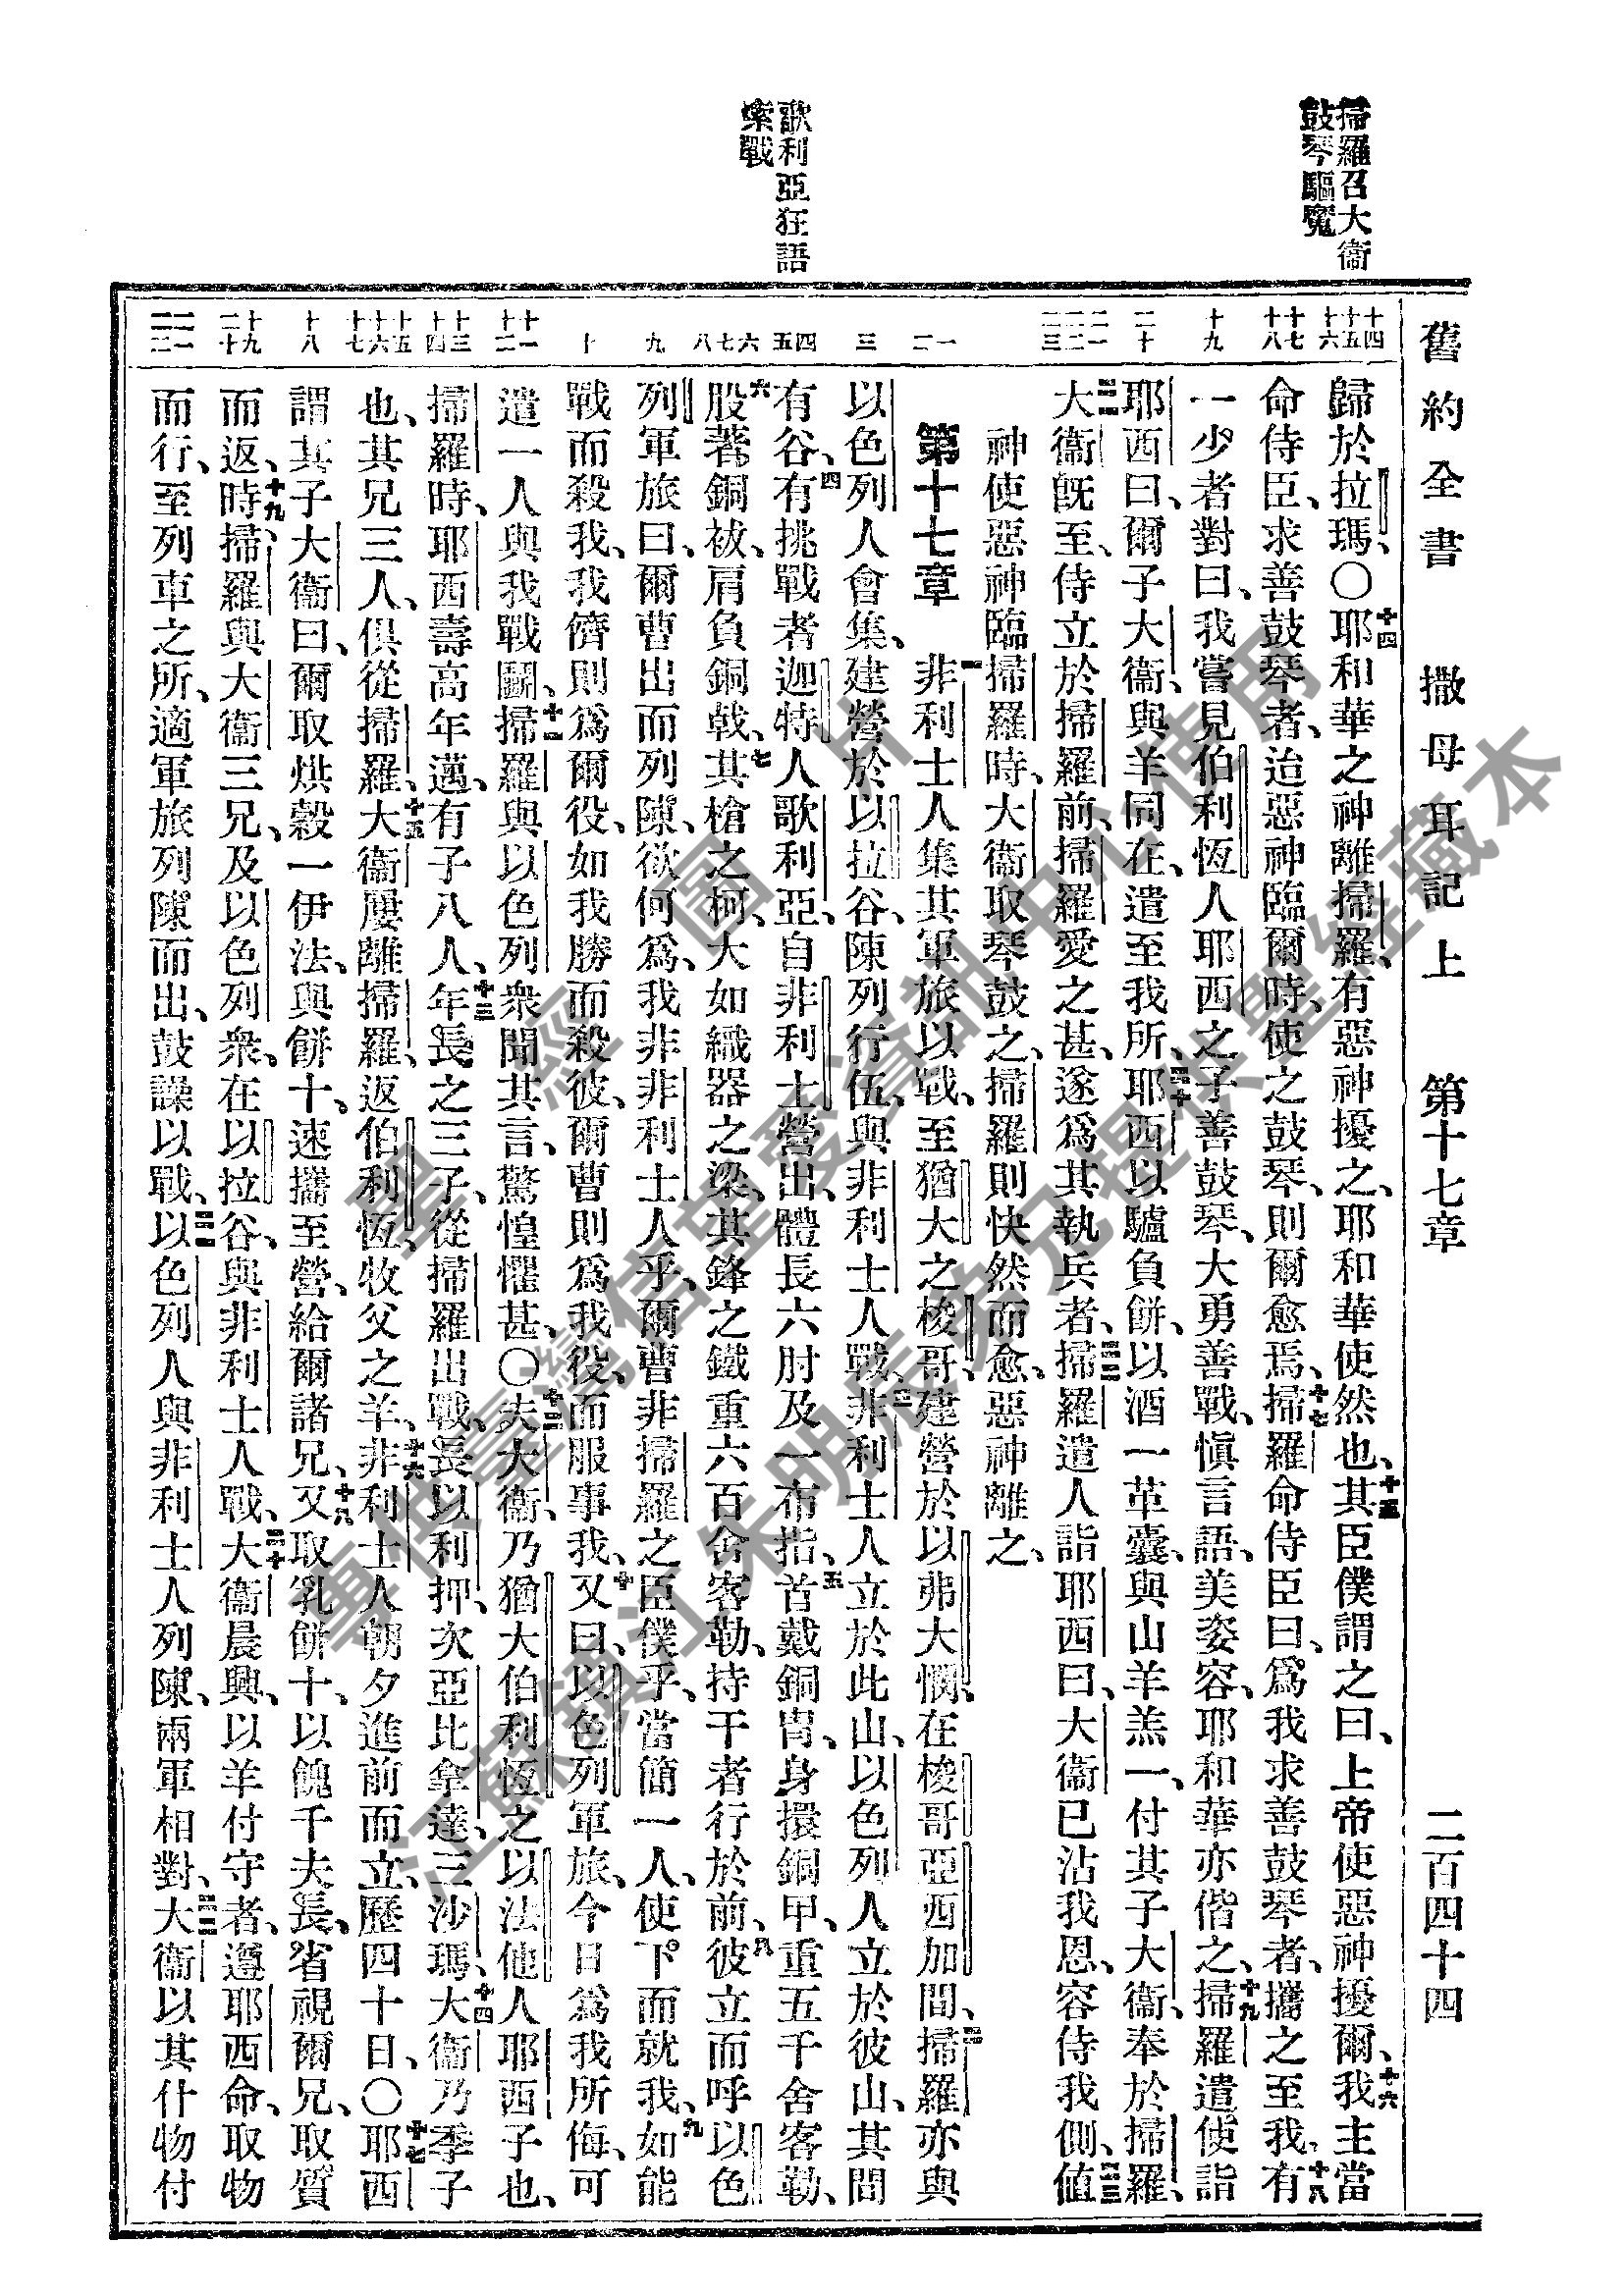 舊約全書 撒母耳記上 第十七章 二百四十四
掃羅召大衞
鼓琴驅魔
歌利亞狂語
索戰
十四 十五 十六
十七 十八
十九
二十
二一 二二 二三
一 二
三
四 五
六 七 八
九
十
十一 十二
十三 十四
十五 十六 十七
十八
十九 二十
二一 二二
歸於拉瑪、〇十四耶和華之神離掃羅、有惡神擾之、耶和華使然也、十五其臣僕謂之曰、上帝使惡神擾爾、十六我主當
命侍臣、求善鼓琴者、迨惡神臨爾時、使之鼓琴、則爾愈焉、十七掃羅命侍臣曰、爲我求善鼓琴者、攜之至我、十八有
一少者對曰、我嘗見伯利恆人耶西之子善鼓琴、大勇善戰、愼言語、美姿容、耶和華亦偕之、十九掃羅遣使詣
耶西曰、爾子大衞、與羊同在、遣至我所、二十耶西以驢負餅、以酒一革囊、與山羊羔一、付其子大衞、奉於掃羅、
二一大衞旣至、侍立於掃羅前、掃羅愛之甚、遂爲其執兵者、二二掃羅遣人詣耶西曰、大衞已沾我恩、容侍我側、二三值
神使惡神臨掃羅時、大衞取琴鼓之、掃羅則快然而愈、惡神離之、
第十七章 一非利士人集其軍旅以戰、至猶大之梭哥、建營於以弗大憫、在梭哥亞西加間、二掃羅亦與
以色列人會集、建營於以拉谷、陳列行伍、與非利士人戰、三非利士人立於此山、以色列人立於彼山、其間
有谷、四有挑戰者迦特人歌利亞、自非利士營出、體長六肘及一布指、五首戴銅冑、身擐銅甲、重五千舍客勒、
六股著銅袚、肩負銅戟、七其槍之柯、大如織器之梁、其鋒之鐵重六百舍客勒、持干者行於前、八彼立而呼以色
列軍旅曰、爾曹出而列陳、欲何爲、我非非利士人乎、爾曹非掃羅之臣僕乎、當簡一人、使下而就我、九如能
戰而殺我、我儕則爲爾役、如我勝而殺彼、爾曹則爲我役、而服事我、十又曰、以色列軍旅、今日爲我所侮、可
遣一人與我戰鬭、十一掃羅與以色列衆聞其言、驚惶懼甚、〇十二夫大衞、乃猶大伯利恆之以法他人耶西子也、
掃羅時、耶西壽高年邁、有子八人、十三年長之三子、從掃羅出戰、長以利押、次亞比拿達、三沙瑪、十四大衞乃季子
也、其兄三人、俱從掃羅、十五大衞屢離掃羅、返伯利恆、牧父之羊、十六非利士人朝夕進前而立、歷四十日、〇十七耶西
謂其子大衞曰、爾取烘穀一伊法、與餅十、速攜至營、給爾諸兄、十八又取乳餅十、以餽千夫長、省視爾兄、取質
而返、十九時、掃羅與大衞三兄、及以色列衆、在以拉谷、與非利士人戰、二十大衞晨興、以羊付守者、遵耶西命、取物
而行、至列車之所、適軍旅列陳而出、鼓譟以戰、二一以色列人與非利士人列陳、兩軍相對、二二大衞以其什物付
聖經圖片
專供臺灣信望愛資訊中心使用
江蘇鎮江朱明辰弟兄提供聖經藏本